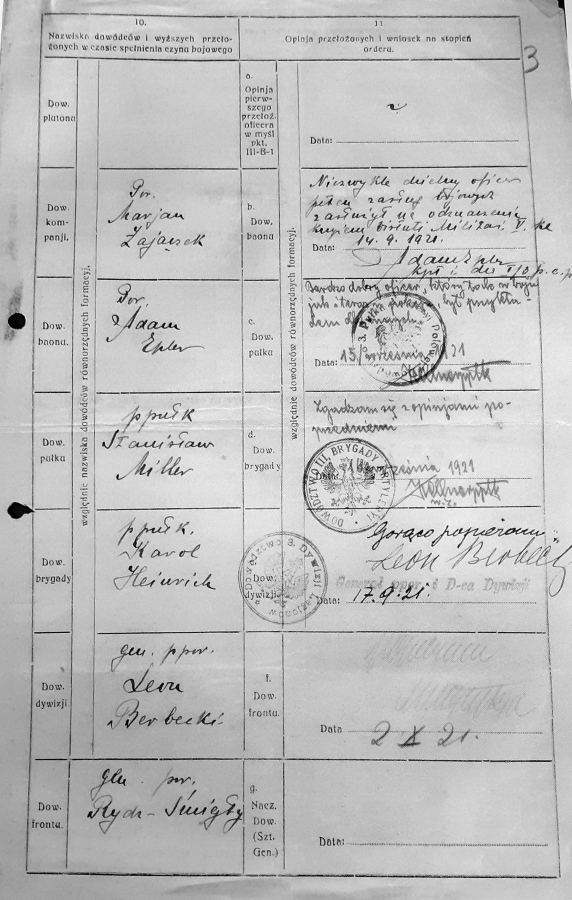 3
10.
Nazwiska dowódców i wyższych przeło-
żonych w czasie spełnienia czynu bojowego
11
Opinja przełożonych i wniosek na stopień
orderu.
względnie nazwiska dowódców równorzędnych formacyj.
względnie dowódców równorzędnych formacyj.
Dow.
plutonu
a.
Opinja
pierw-
szego
przełoż.
oficera
w myśl
pkt.
III-B-1
Data:
Dow.
kom-
panji.
Por.
Marjan
Zajączek
b.
Dow.
baonu
Niezwykle dzielny oficer
pełen zasług bojowych
zasłużył na odznaczenie
krzyżem Virtuti Militari V. kl.
Data: 14. 9. 1921.
Adam Epler
kpt i dca I/3 p. a. p
Dow.
baonu.
Por.
Adam
Epler
c.
Dow.
pułku
Bardzo dobry oficer, który tak w boju
jak i teraz
był przykła
dem
15/ września 21
ppłk
Dow.
pułku
ppułk
Stanisław
Miller
d.
Dow.
brygady
Zgadzam się z opinjami po-
przedniemi
Data:
września 1921
ppłk
DOWÓDZTWO III. BRYGADY ARTYLERYI
Dow.
brygady
ppułk.
Karol
Heinrich
Dow.
dywizji
Dowództwo 3. Dywizji Legjonów
Gorąco popieram
Leon Berbecki
Generał ppor. i D-ca Dywizji
Data: 17. 9. 21.
Dow.
dywizji.
gen. ppor.
Leon
Berbecki
f.
Dow.
frontu.
Data 2 X 21.
Dow.
frontu.
gen. por.
Rydz-Śmigły
g.
Nacz.
Dow.
(Szt.
Gen.)
Data: